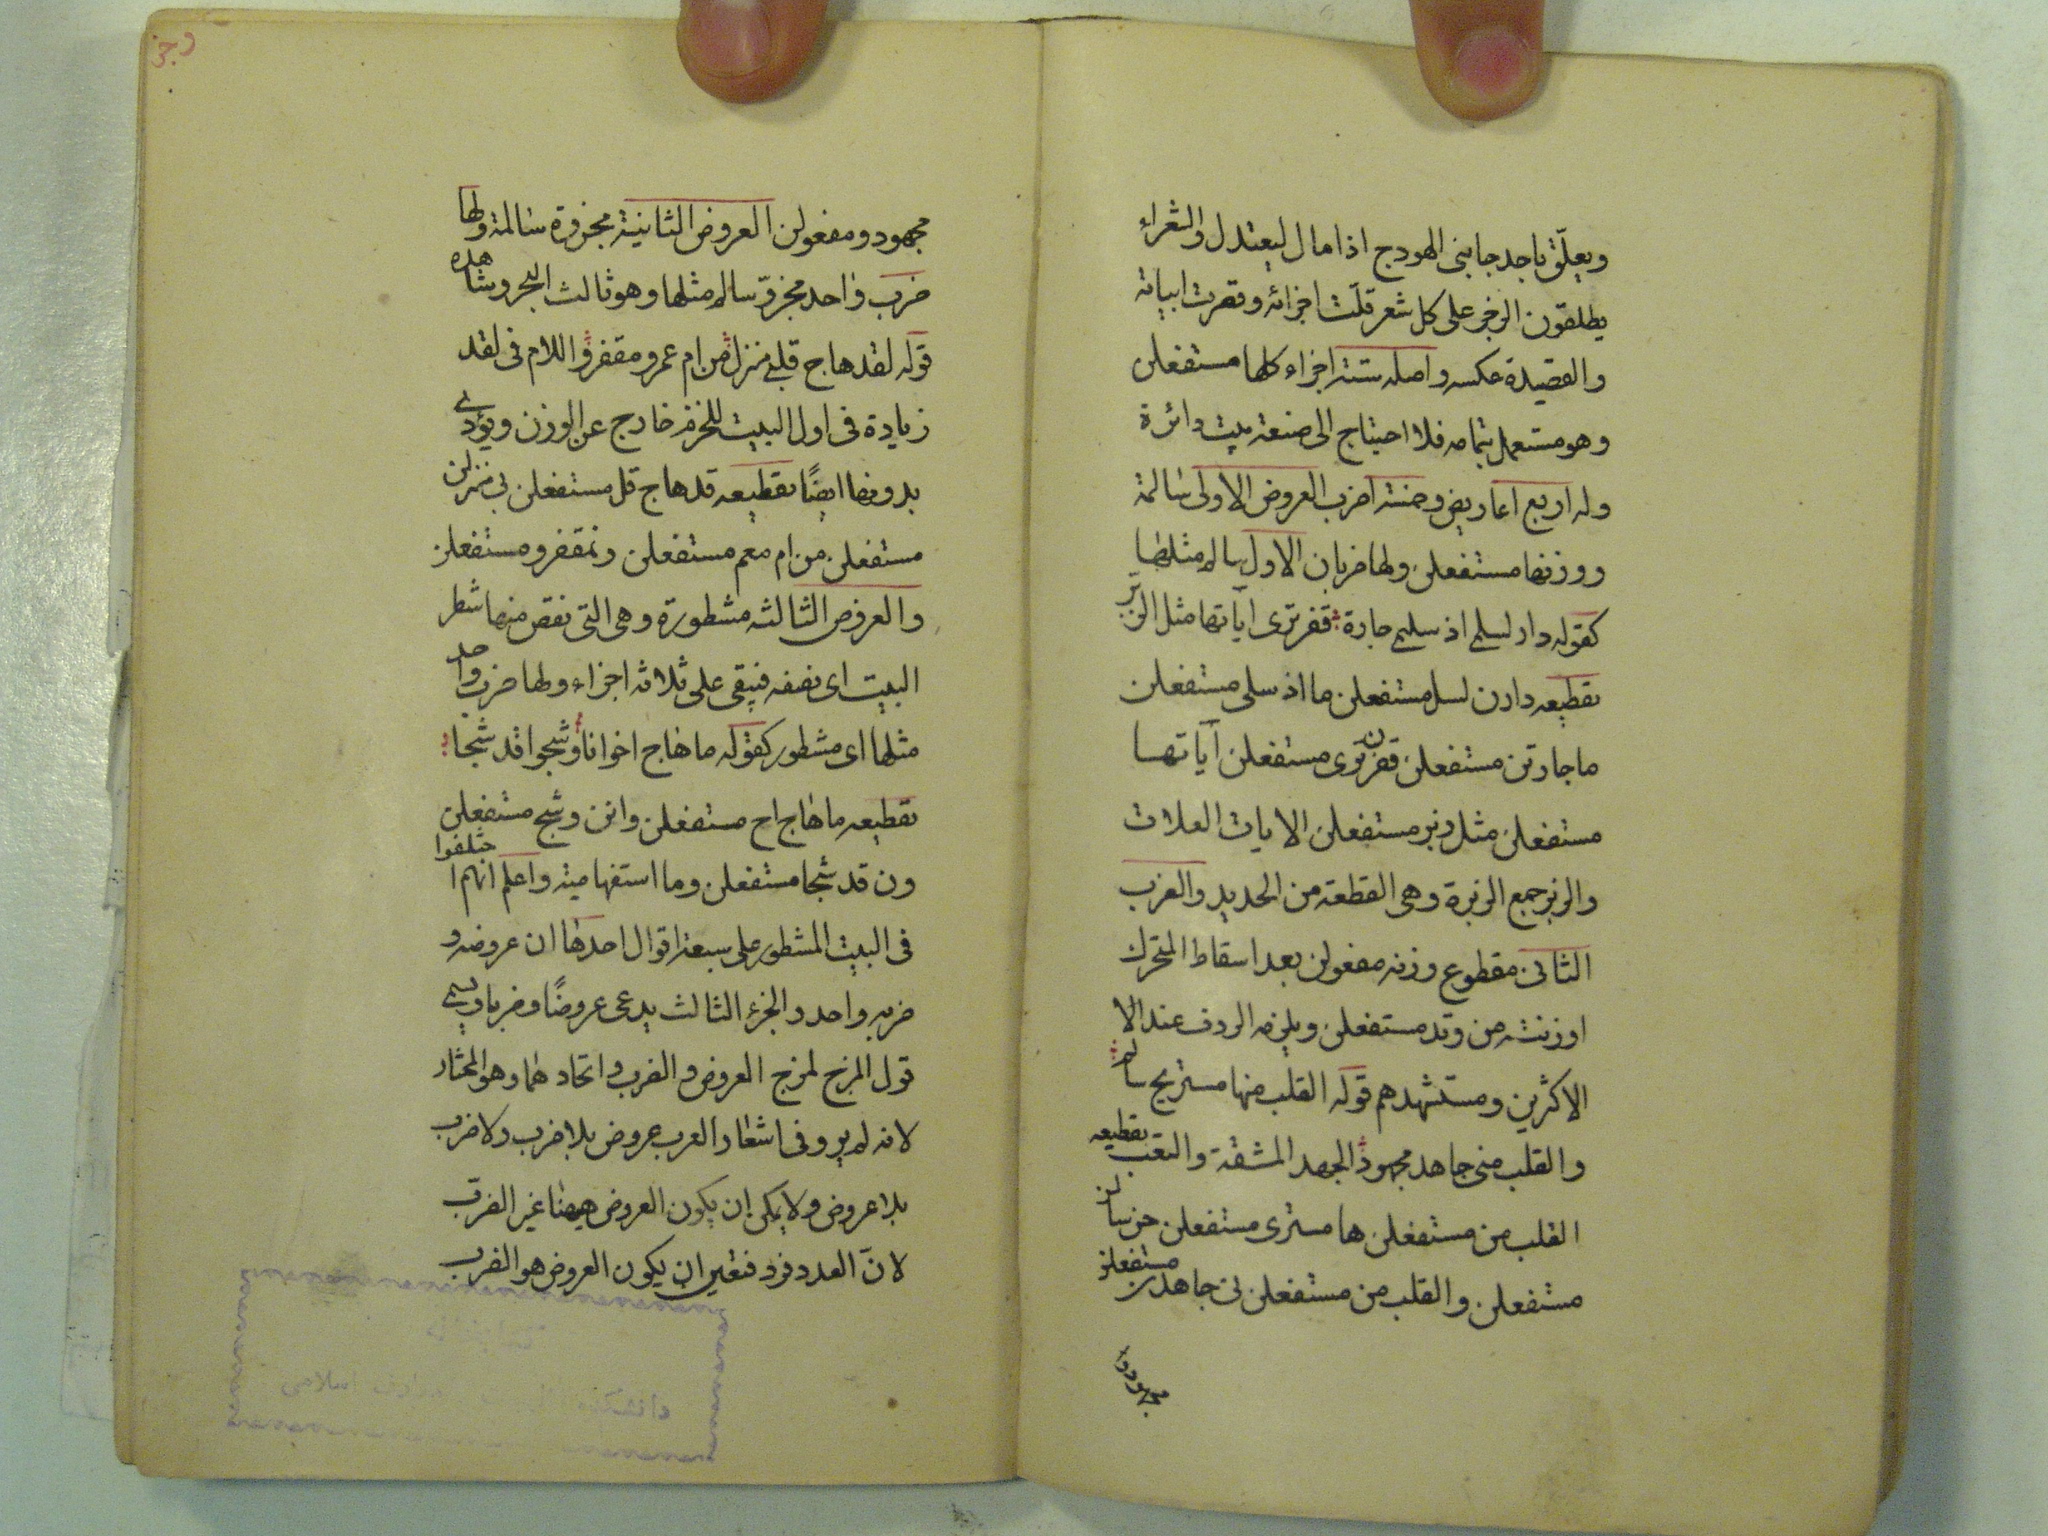 ويعلّق باحد جانبى الهودج اذا مال ليعتدل والشعراء
يطلقون الرجز على كل شعر قلّت اجزائه وقصرت ابياته
والقصيدة عكسه واصله ستة اجزاء كلها مستفعلن
وهو مستعمل بتمامه فلا احتياج الى صنعة بيت دائرة
وله اربع اعاريض وخمسة اضرب العروض الاولى سالمة
ووزنها مستفعلن ولها ضربان الاول سالم مثلها
كقوله دار لسلمى اذ سليمى جارة قفر ترى آياتها مثل الزبر
تقطيعه دارن لسل مستفعلن ما اذ سلى مستفعلن
ما جارتن مستفعلن قفرن ترى مستفعلن آياتها
مستفعلن مثل زبر مستفعلن الايات العلات
والزبر جمع الزبرة وهى القطعة من الحديد والضرب
الثانى مقطوع وزنه مفعولن بعد اسقاط المتحرك
او زنته من وتد مستفعلن ويلزمه الردف عند الا
الاكثرين ومستشهدهم قوله القلب منها مستريح سالم
والقلب منى جاهد مجهود الجهد المشقة والتعب تقطيعه
القلب من مستفعلن ها مسترى مستفعلن حن سالن
مستفعلن والقلب من مستفعلن نى جاهدن مستفعلن
مجهودو
مجهودو مفعولن العروض الثانية مجزوة سالمة ولها
ضرب واحد مجزوّ سالم مثلها وهو ثالث البحر وشاهده
قوله لقد هاج قلبى منزل من ام عمرو مقفر واللام فى لقد
زيادة فى اول البيت للخزم خارج عن الوزن ويؤدى
بدونها ايضًا تقطيعه قد هاج قل مستفعلن بى منزلن
مستفعلن من ام عم مستفعلن رنمقفرو مستفعلن
والعروض الثالثه مشطورة وهى التى نقص منها شطر
البيت اى نصفه فيبقى على ثلاثه اجزاء ولها ضرب واحد
مثلها اى مشطور كقوله ما هاج اخوانا وشجوا قد شجا
تقطيعه ما هاج اخ مستفعلن وانن وشج مستفعلن
ون قد شجا مستفعلن وما استفهامية واعلم انهم اختلفوا
فى البيت المشطور على سبعة اقوال احدها ان عروضه و
ضربه واحد والجزء الثالث يدعى عروضًا وضربا ويسمى
قول المزج لمزج العروض والضرب واتحادهما وهو المختار
لانه لم يرو فى اشعار العرب عروض بلا ضرب ولا ضرب
بلا عروض ولا يمكن ان يكون العروض ههنا غير الضرب
لانّ العدد فرد فتعين ان يكون العروض هو الضرب